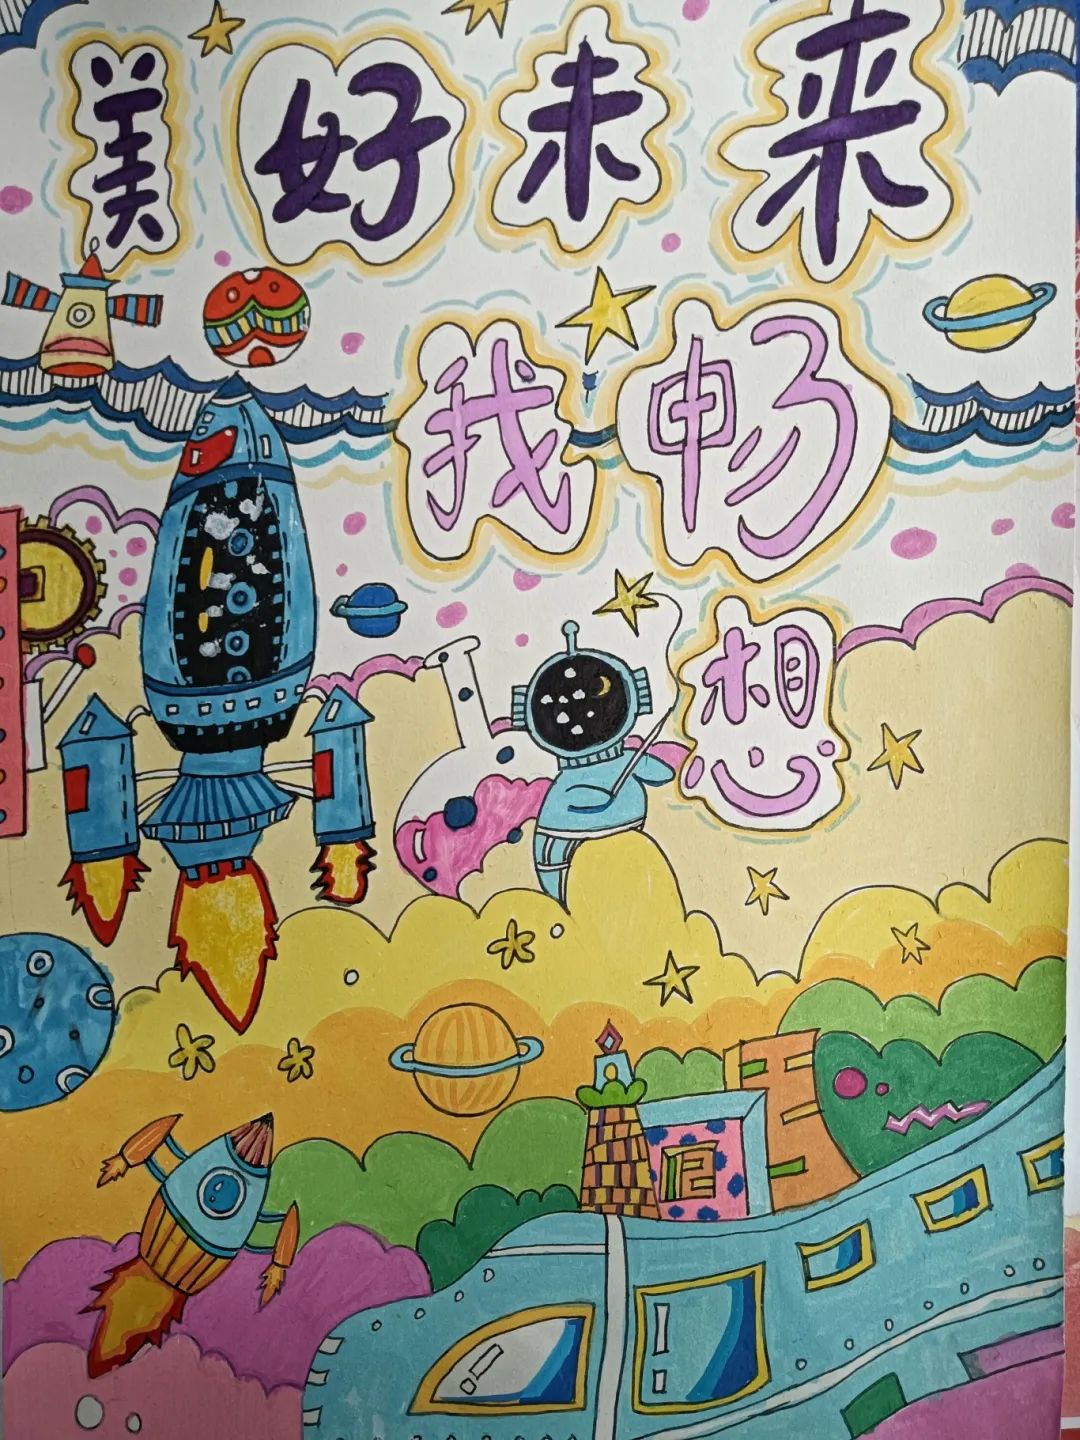 美好未来
我畅
想